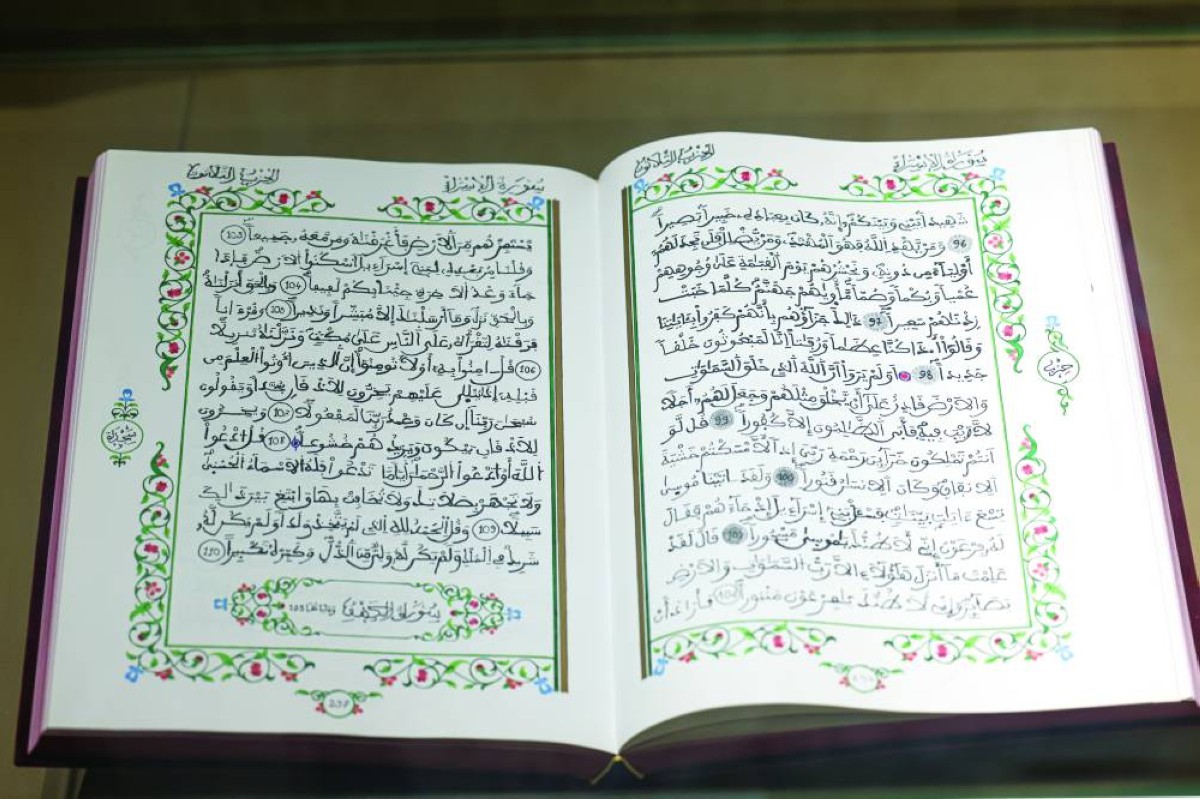 سورة الإسراء
الحزب الثلاثون
شهيدا بيني وبينكم إنه كان بعباده خبيرا بصيرا
96 ومن يهد الله فهو المهتد ومن يضلل فلن تجد لهم
أولياء من دونه ونحشرهم يوم القيمة على وجوههم
عميا وبكما وصما مأويهم جهنم كلما خبت
زدناهم سعيرا 97 ذلك جزاؤهم بأنهم كفروا بآياتنا
وقالوا أ.ذا كنا عظما ورفتا إنا لمبعوثون خلقا
جديدا 98 أولم يروا أن الله الذي خلق السماوات
والأرض قادر على أن يخلق مثلهم وجعل لهم أجلا
لا ريب فيه فأبى الظالمون إلا كفورا 99 قل لو
أنتم تملكون خزائن رحمة ربي إذا لأمسكتم خشية
الانفاق وكان الانسان قتورا 100 ولقد اتينا موسى
تسع ءايات بينات فسئل بني إسراءيل إذ جاءهم فقال
له فرعون إني لأظنك يموسى مسحورا 101 قال لقد
علمت ما أنزل هؤلاء الا رب السماوات والارض
بصائر وإني لأظنك يفرعون مثبورا 102 فأراد أن
حزب
سورة الإسراء
الحزب الثلاثون
يستفزهم من الارض فأغرقناه ومن معه جميعا 103
وقلنا من بعده لبني إسراءيل اسكنوا الارض فإذا
جاء وعد الاخرة جئنا بكم لفيفا 104 وبالحق أنزلناه
وبالحق نزل وما أرسلناك إلا مبشرا ونذيرا 105 وقرءانا
فرقناه لتقرأه على الناس على مكث ونزلناه تنزيلا
106 قل امنوا به أولا تومنوا إن الذين أوتوا العلم من
قبله إذا يتلى عليهم يخرون للاذقان سجدا ويقولون
سبحان ربنا إن كان وعد ربنا لمفعولا 107 ويخرون
للاذقان يبكون ويزيدهم خشوعا 108 قل ادعوا
الله أو ادعوا الرحمان أياما تدعوا فله الاسماء الحسنى
ولا تجهر بصلاتك ولا تخافت بها وابتغ بين ذلك
سبيلا 109 وقل الحمد لله الذي لم يتخذ ولدا ولم يكن له
شريك في الملك ولم يكن له ولي من الذل وكبره تكبيرا 110
سورة الكهف وءاياتها 105
سجدة
237